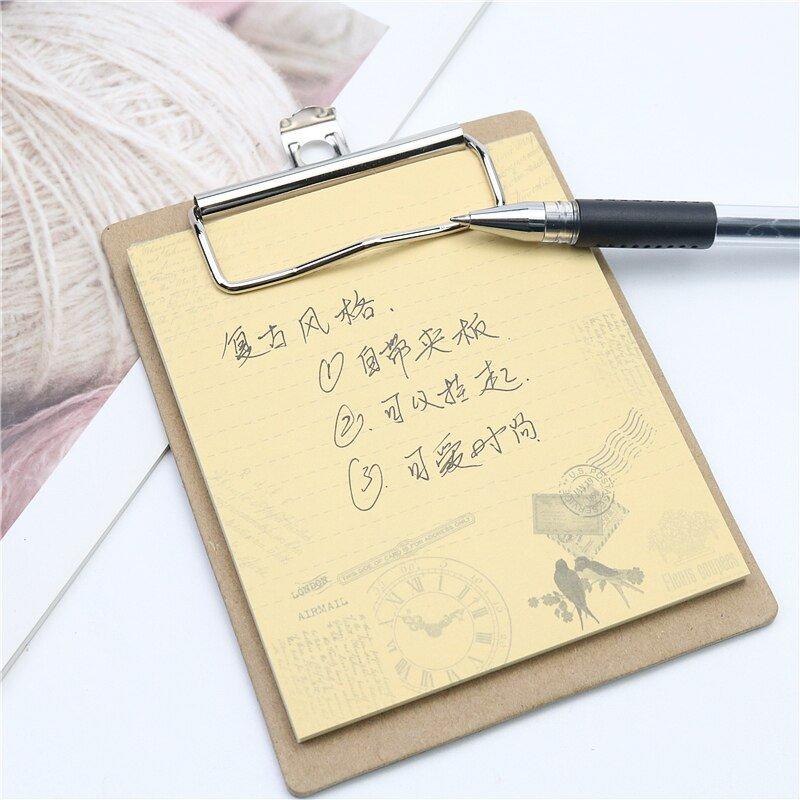 复古风格.
① 自带夹板.
② 可以挂起.
③ 可爱时尚
THIS SIDE OF CARD IS FOR ADDRESS ONLY
LONDON
AIRMAIL
U.S. POSTAL SERVICE
Fleurs coupées